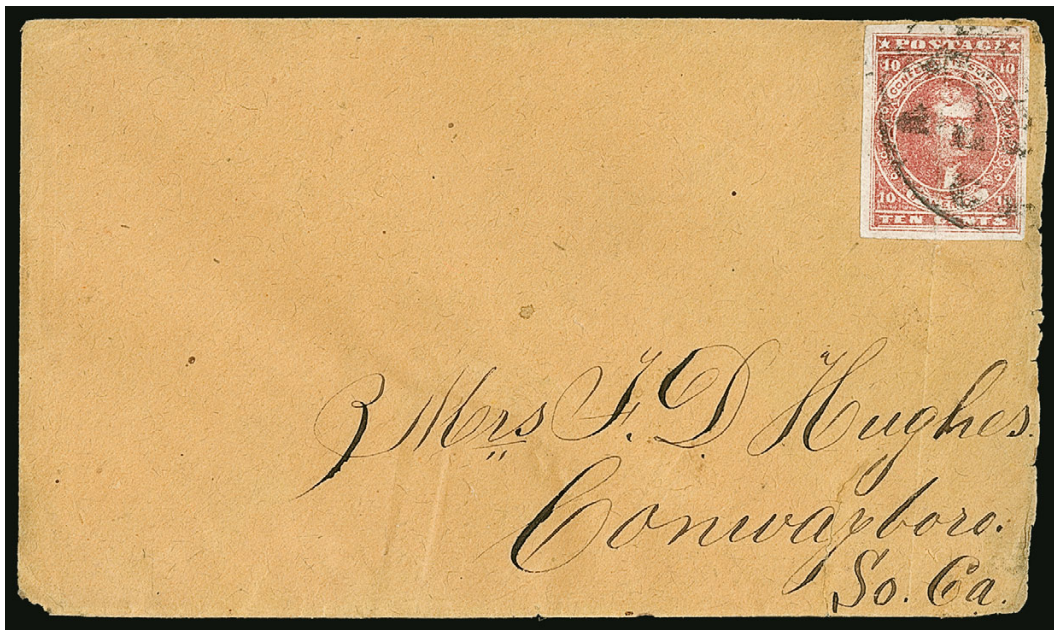 ★ POSTAGE ★
10 10
CONFEDERATE STATES
10 10
TEN CENTS
Mrs F. D Hughes.
Conwayboro.
So. Ca.